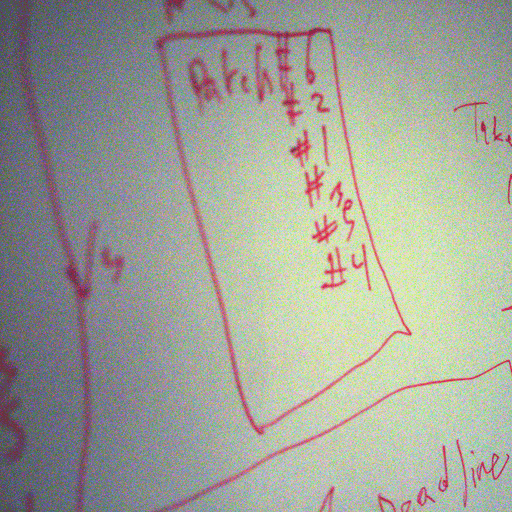 Patch #6
#2
#1
#3
#5
#4
Take
Deadline